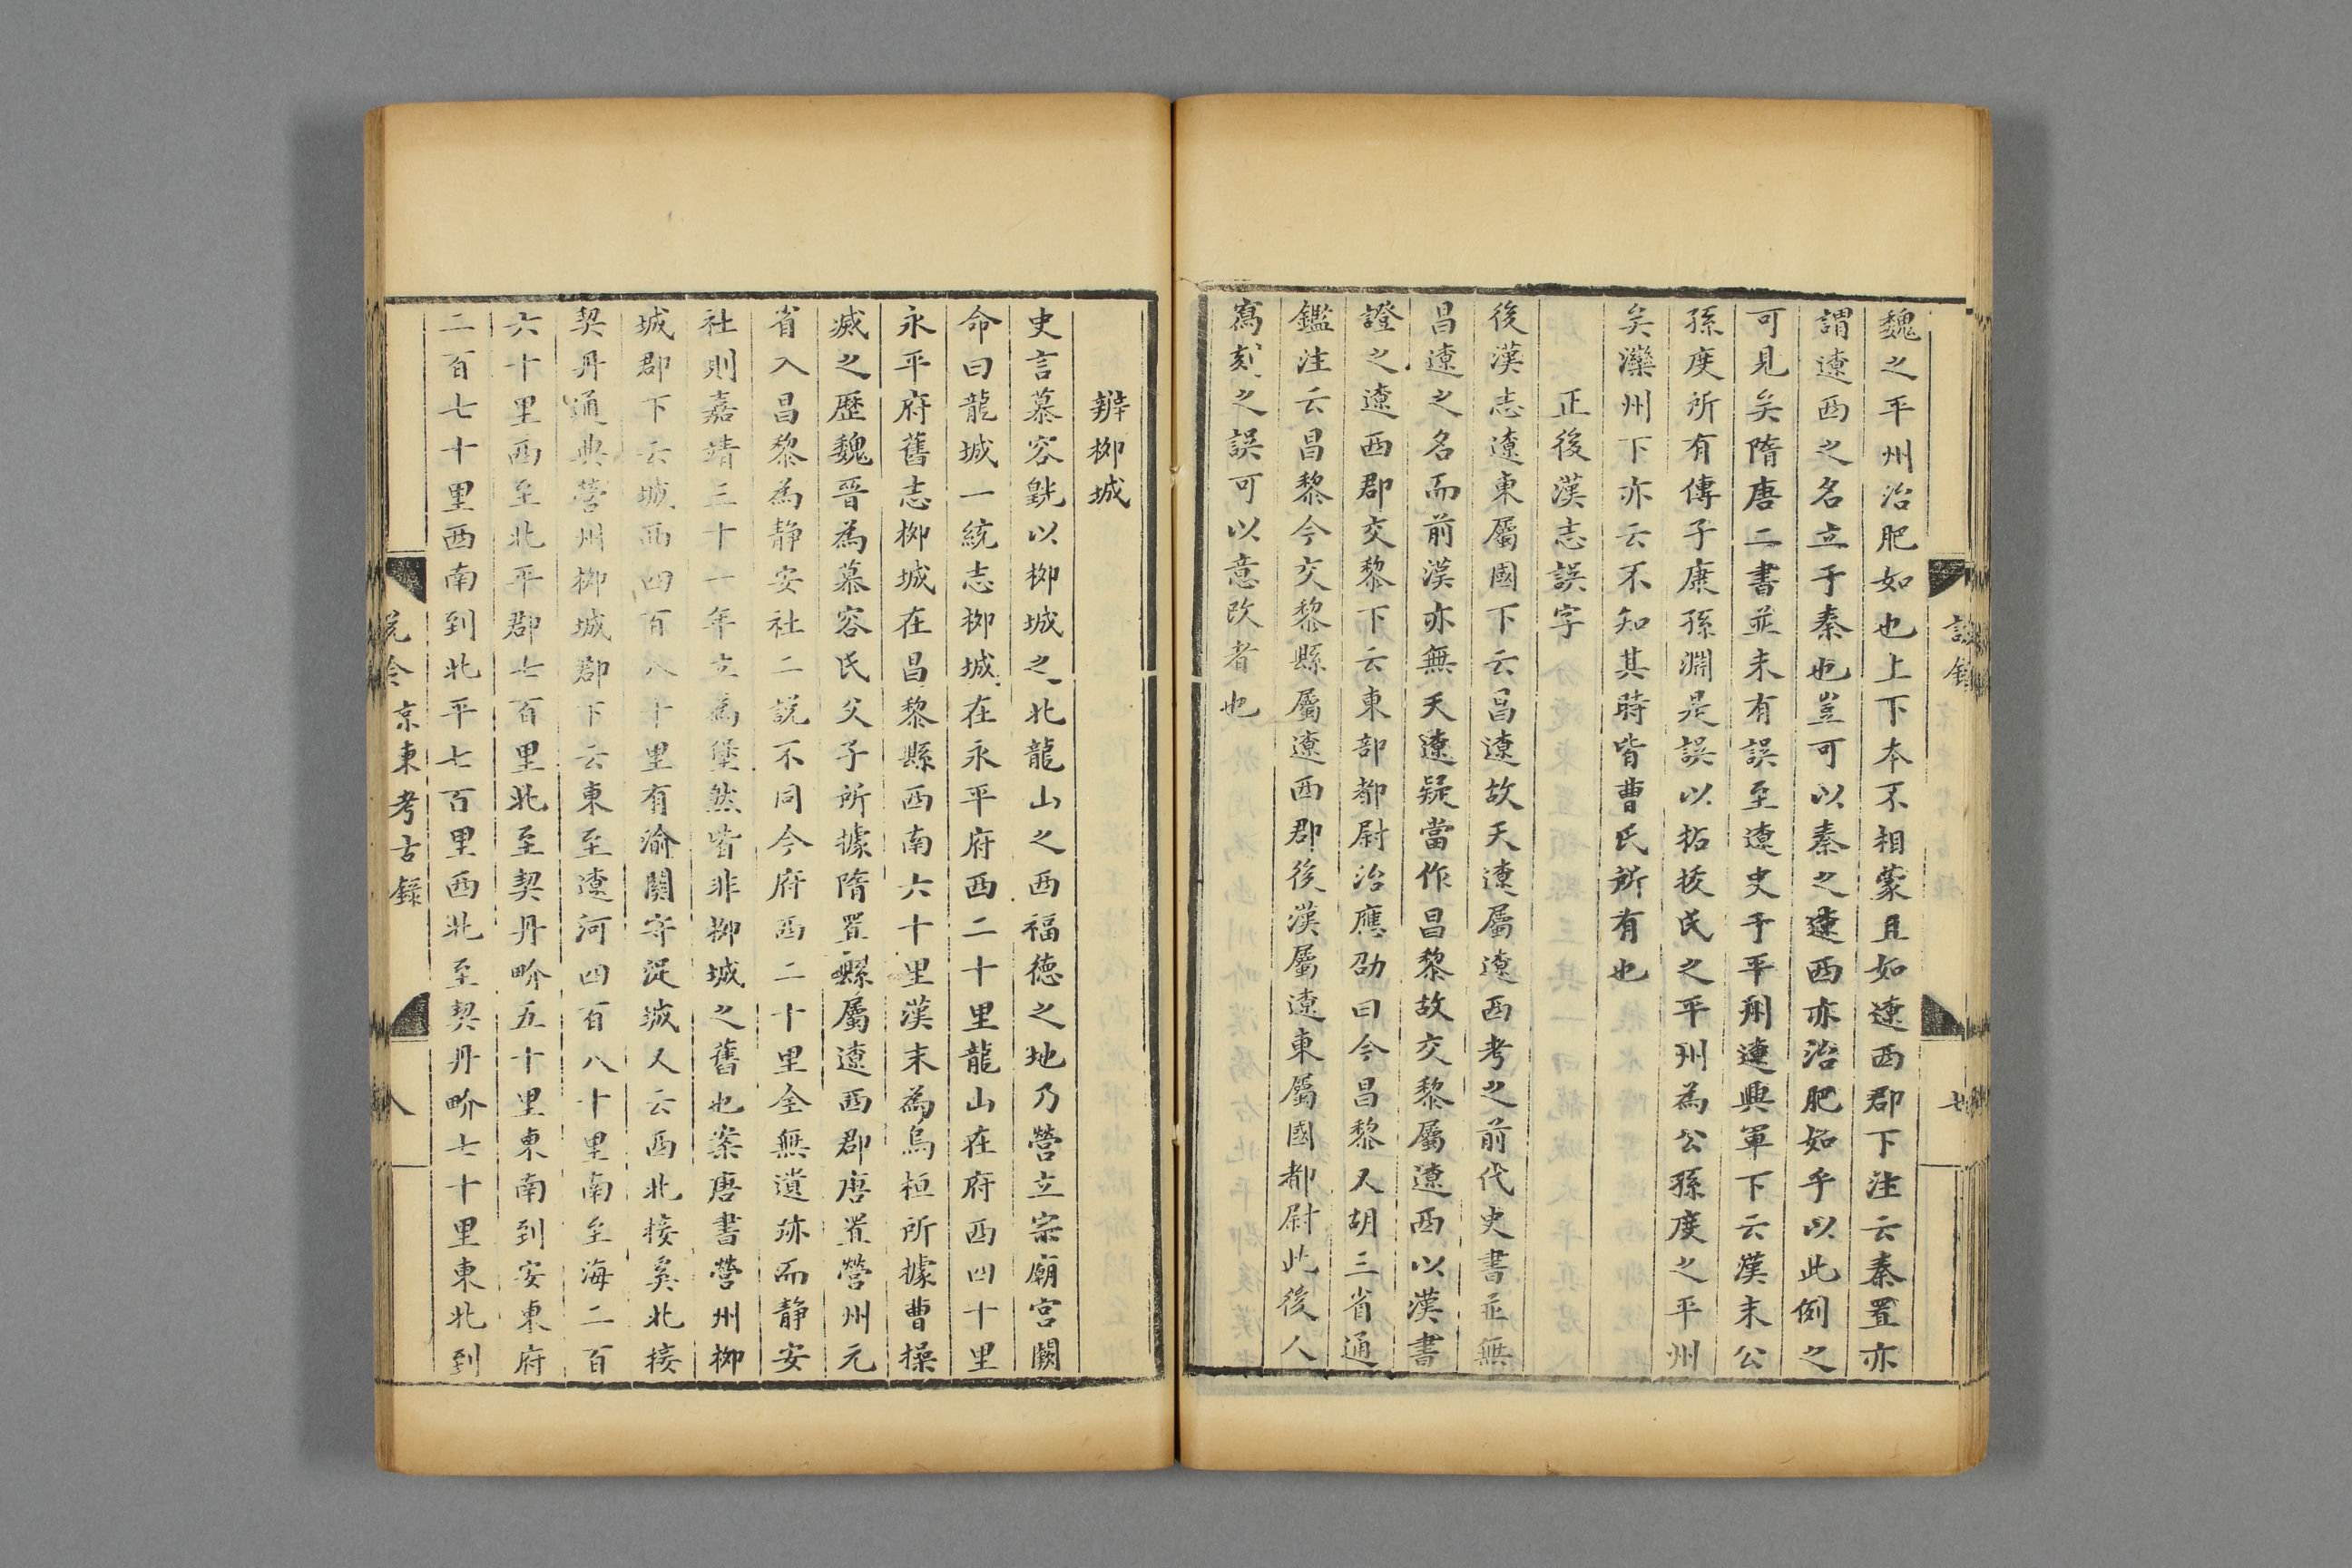 魏之平州治肥如也上下本不相蒙且如遼西郡下注云秦置亦
謂遼西之名立于秦也豈可以秦之遼西亦治肥如乎以此例之
可見矣隋唐二書並未有誤至遼史于平州遼興軍下云漢末公
孫度所有傳子康孫淵是誤以拓拔氏之平州為公孫度之平州
矣灤州下亦云不知其時皆曹氏所有也
正後漢志誤字
後漢志遼東屬國下云昌遼故天遼屬遼西考之前代史書並無
昌遼之名而前漢亦無天遼疑當作昌黎故交黎屬遼西以漢書
證之遼西郡交黎下云東部都尉治應劭曰今昌黎又胡三省通
鑑注云昌黎今交黎縣屬遼西郡後漢屬遼東屬國都尉此後人
寫刻之誤可以意改者也
辨柳城
史言慕容皝以柳城之北龍山之西福德之地乃營立宗廟宮闕
命曰龍城一統志柳城在永平府西二十里龍山在府西四十里
永平府舊志柳城在昌黎縣西南六十里漢末為烏桓所據曹操
滅之歷魏晉為慕容氏父子所據隋置縣屬遼西郡唐置營州元
省入昌黎為靜安社二說不同今府西二十里全無遺跡而靜安
社則嘉靖三十一年立為堡然皆非柳城之舊也案唐書營州柳
城郡下云城西四百八十里有渝關守捉城又云西北接奚北接
契丹通典營州柳城郡下云東至遼河四百八十里南至海二百
六十里西至北平郡七百里北至契丹畍五十里東南到安東府
二百七十里西南到北平七百里西北至契丹畍七十里東北到
京東考古錄
八